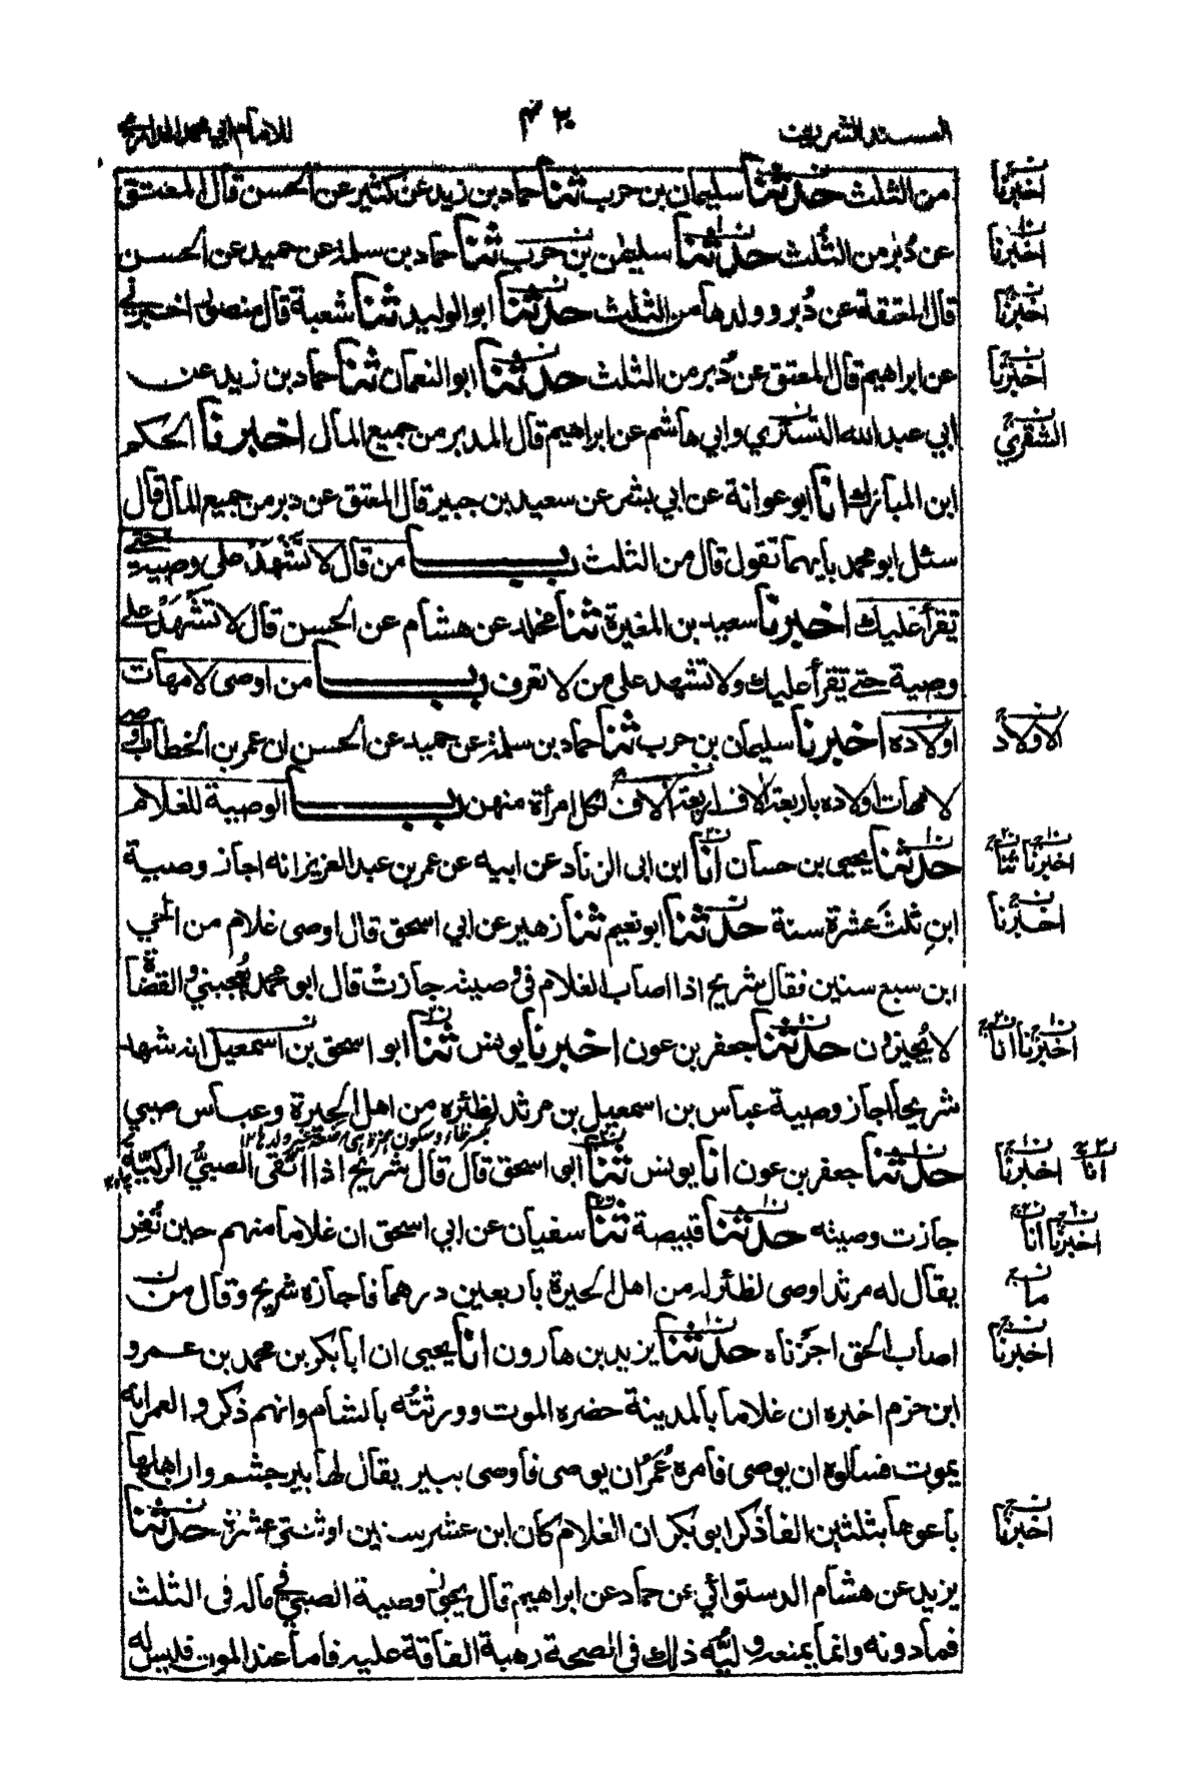 المسند الشريف
٤٣٠
للامام ابي محمد الدارمي
من الثلث حدثنا سليمان بن حرب ثنا حماد بن زيد عن كثير عن الحسن قال المعتق
عن دُبر من الثُلث حدثنا سليمٰن بن حرب ثنا حماد بن سلمة عن حميد عن الحسن
قال المعتقة عن دُبر وولدها من الثلث حدثنا ابو الوليد ثنا شعبة قال منصور اخبرني
عن ابراهيم قال المعتق عن دُبر من الثلث حدثنا ابو النعمان ثنا حماد بن زيد عن
ابي عبد الله التستري وابي هاشم عن ابراهيم قال المدبر من جميع المال اخبرنا الحكم
ابن المبارك انا ابو عوانة عن ابي بشر عن سعيد بن جبير قال المعتق عن دبر من جميع المال قال
سئل ابو محمد بايهما تقول قال من الثلث باب من قال لا تَشْهَدْ على وصية حتى
تقرأ عليك اخبرنا سعيد بن المغيرة ثنا مخلد عن هشام عن الحسن قال لا تَشْهَدْ على
وصية حتى تقرأ عليك ولا تشهد على من لا تعرف باب من اوصى لامهات
اولاده اخبرنا سليمان بن حرب ثنا حماد بن سلمة عن حميد عن الحسن ان عمر بن الخطاب اوصى
لامهات اولاده باربعة الاف اربعة الاف لكل امرأة منهن باب الوصية للغلام
حدثنا يحيى بن حسان انا ابن ابى الزناد عن ابيه عن عمر بن عبد العزيز انه اجاز وصية
ابنِ ثلثَ عشرة سنة حدثنا ابو نعيم ثنا زهير عن ابي اسحق قال اوصى غلام من الحي
ابن سبع سنين فقال شريح اذا اصاب الغلام في وصيته جازتْ قال ابو محمد يُعجبني والقضاة
لا يُجيزون حدثنا جعفر بن عون اخبرنا يونس ثنا ابو اسحق بن اسمعيل انه شهد
شريحا اجاز وصية عباس بن اسمعيل بن مرثد لظئره من اهل الحيرة وعباس صبي
حدثنا جعفر بن عون انا يونس ثنا ابو اسحق قال قال شريح اذا اتَّقى الصبيُّ الركيّةَ
جازت وصيته حدثنا قبيصة ثنا سفيان عن ابي اسحق ان غلاما منهم حين ثُغِر
يقال له مرثد اوصى لظئر له من اهل الحيرة باربعين درهما فاجازه شريح وقال من
اصاب الحق اجزناه حدثنا يزيد بن هارون انا يحيى ان ابا بكر بن محمد بن عمرو
ابن حزم اخبره ان غلاما بالمدينة حضره الموت وورثتُه بالشام وانهم ذكروا لعمر انه
يموت فسالوه ان يوصى فامره عُمَرُ ان يوصى فاوصى ببير يقال لها بير جشم وان اهلها
باعوها بثلثين الفا ذكر ابو بكر ان الغلام كان ابن عشر سنين او ثنتي عشرة حدثنا
يزيد عن هشام الدستوائي عن حماد عن ابراهيم قال يجوز وصية الصبي في ماله في الثلث
فما دونه وانما يمنعه وليُّه ذلك في الصحة رهبة الفاقة عليه فاما عند الموت فليس له
اخبرنا
اخبرنا
اخبرنا
اخبرنا
الشقري
الاولاد
اخبرنا ثنا
اخبرنا
اخبرنا انا
اخبرنا انا
اخبرنا انا
ما
اخبرنا
اخبرنا